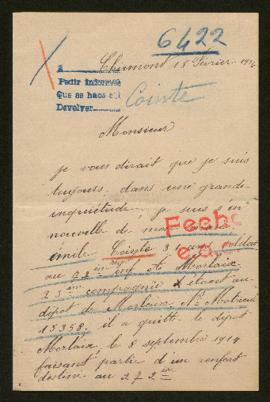 6422
Chimont 18 Février 1916
A
Pedir informes
Que se hace el
Devolver
Cointe
Monsieur
je vous dirait que je suis
toujours dans une grande
inquiétude je suis
nouvelle de mon
émile Cointe 31 ans soldat
au inf de Morlaix
23ème compagnie était au
dépôt de Morlaix No Matricule
15358. il a quitté le dépôt
Morlaix le 8 septembre 1914
faisant partie d'un renfort
destiné au 272ème